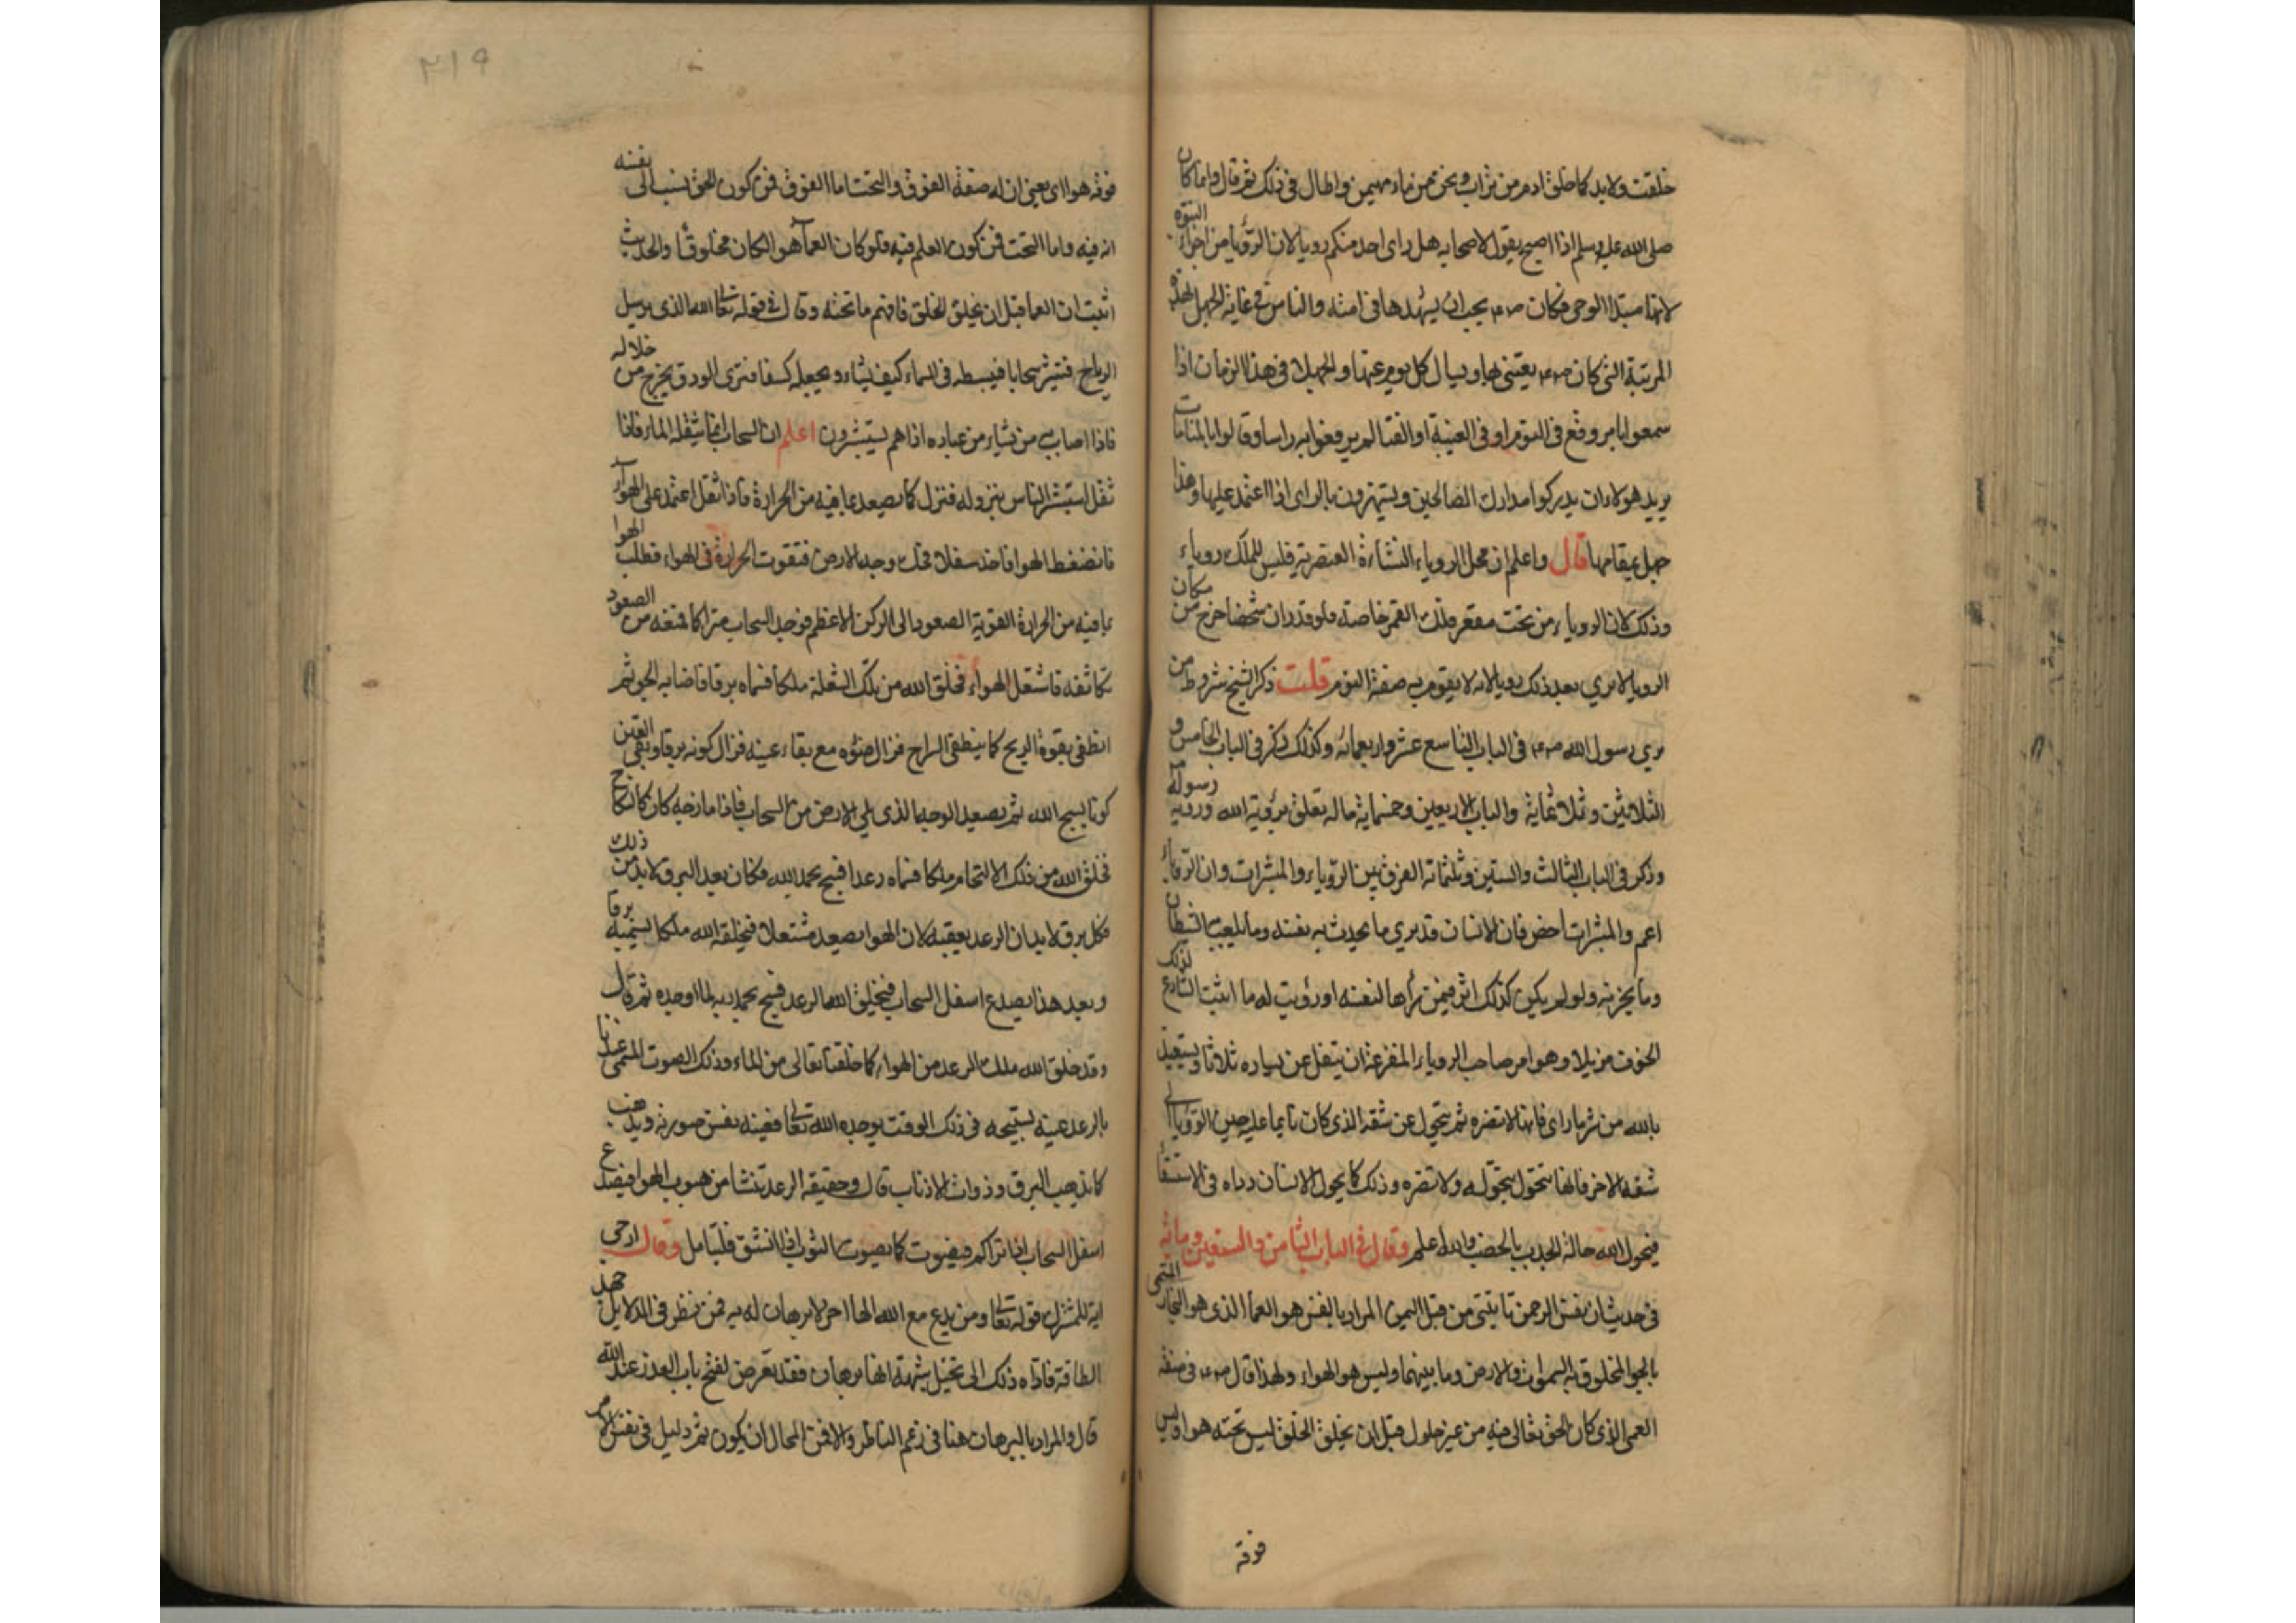 خلقت ولا بد كما خلق ادم من تراب ونحن من ماء مهين واطال في ذلك ثم قال وانما كان
صلى الله عليه وسلم اذا اصبح يقول لاصحابه هل راى احد منكم رويا لان الرؤيا من اجزاء النبوة
لانها مبتدا الوحي فكان صلعم يحب ان يشهدها في امته والناس في غاية الجهل بهذه
المرتبة التي كان صلعم يعتني بها ويسال كل يوم عنها والجهلا في هذا الزمان اذا
سمعوا بامر وقع في النوم او في الغيبة او الفنا لم يرفعوا به راسا وقالوا بالمنامات
يريد هولاء ان يدركوا مدارك الصالحين ويستهزون بالراى اذا اعتمد عليها وهذا
جهل بمقامها قال واعلم ان محل الروياء النشاءة العنصرية فليس للملك روياء
وذلك لان الروياء من تحت مقعر فلك القمر خاصة ولو قدر ان شخصا خرج من مكان
الرويا لا يري بعد ذلك رويا لانه لا يقوم به صفة النوم قلت ذكر الشيخ شروط من
يري رسول الله صلعم في الباب التاسع عشر واربعمائه وكذلك ذكر في الباب الخامس و
الثلاثين وثلاثماية والباب الاربعين وخمسماية ما له تعلق برؤية الله وروية رسوله
وذكر في الباب الثالث والستين وثلثمائه الفرق بين الروياء والمبشرات وان الروياء
اعم والمبشرات اخص فان الانسان قد يري ما يحدث به نفسه وما يلعب به الشيطان
وما يحزنه ولو لم يكن كذلك اثر فيمن رأها لنفسه او رؤيت له ما اثبت الشارع لذلك
الخوف مزيلا وهو امر صاحب الروياء المفزعة ان يتفل عن يساره ثلاثا ويستعيذ
بالله من شر ما راى فانها لا تضره ثم يتحول عن شقه الذي كان نايما عليه حين الرؤيا الى
شقه الاخر فانها تتحول بتحوله ولا تضره وذلك كما يحول الانسان رداه في الاستسقا
فيحول الله حالة الجدب بالخصب والله اعلم وقال في الباب الثامن والتسعين ومائه
في حديث ان نفس الرحمن تاتيني من قبل اليمن المراد بالنفس هو العما الذي هو البخار المسمى
بالحق المخلوق به السموات والارض وما بينهما وليس هو الهواء ولهذا قال صلعم في صفة
العمى الذي كان الحق تعالى فيه من غير حلول قبل ان يخلق الخلق ليس تحته هوا وليس
فوقه
فوقه هوا اى يعني ان له صفة الفوق والتحت اما الفوق فمن كون الحق ينسب الى نفسه
انه فيه واما التحت فمن كون العلم فيه فلو كان العما هو الهوا لكان مخلوقا والحديث
اثبت ان العما قبل ان يخلق الخلق فافهم ما تحته وقال في قوله تعالى الله الذي يرسل
الرياح فتثير سحابا فيبسطه في السماء كيف يشاء ويجعله كسفا فترى الودق يخرج من خلاله
فاذا اصاب به من يشاء من عباده اذا هم يستبشرون اعلم ان السحاب انما يثقله الماء فاذا
ثقل استبشر الناس بنزوله فنزل كما يصعد بما فيه من الحرارة فاذا ثقل اعتمد على الهواء
فانضغط الهوا فاخذ سفلا فحك وجه الارض فتقوت الحرارة في الهواء فطلب الهوا
بما فيه من الحرارة القوية الصعود الى الركن الاعظم فوجد السحاب متراكما فمنعه من الصعود
تكاثفه فاشتعل الهواء فخلق الله من تلك الشعلة ملكا فسماه برقا فاضا به الجو ثم
انطفى بقوة الريح كما ينطفي السراج فزال ضوؤه مع بقاء عينه فزال كونه برقا وبقي العين
كونا يسبح الله ثم يصعد الوجه الذي يلي الارض من السحاب فاذا مازجه كان كالنكاح
فخلق الله من ذلك الالتحام ملكا فسماه رعدا فسبح بحمد الله فكان بعد البرق لا بد من ذلك
فكل برق لا بد ان الرعد يعقبه لان الهوا يصعد مشتعلا فيخلقه الله ملكا يسميه برقا
وبعد هذا يصدع اسفل السحاب فيخلق الله الرعد فيسبح بحمد ربه لما اوجده ثم قال
وقد خلق الله ملك الرعد من الهواء كما خلقنا تعالى من الماء وذلك الصوت المسمى عندنا
بالرعد عين تسبيحه في ذلك الوقت يوجده الله تعالى فعينه نفس صورته ويذهب
كما يذهب البرق وذوات الاذناب قال وحقيقة الرعد تنشا من هبوب الهوا فيصدع
اسفل السحاب اذا تراكم فيصوت كما يصوت الثوب اذا انشق فليتامل وقال ارجى
اية للمشرك قوله تعالى ومن يدع مع الله الها اخر لا برهان له به فمن نظر في الدلايل جهد
الطاقة فاداه ذلك الى تخيل شبهة انها برهان فقد تعرض لفتح باب العذر عند الله
قال والمراد بالبرهان هنا في زعم الناظر والا فمن المحال ان يكون ثم دليل في نفس الامر
٢١٩